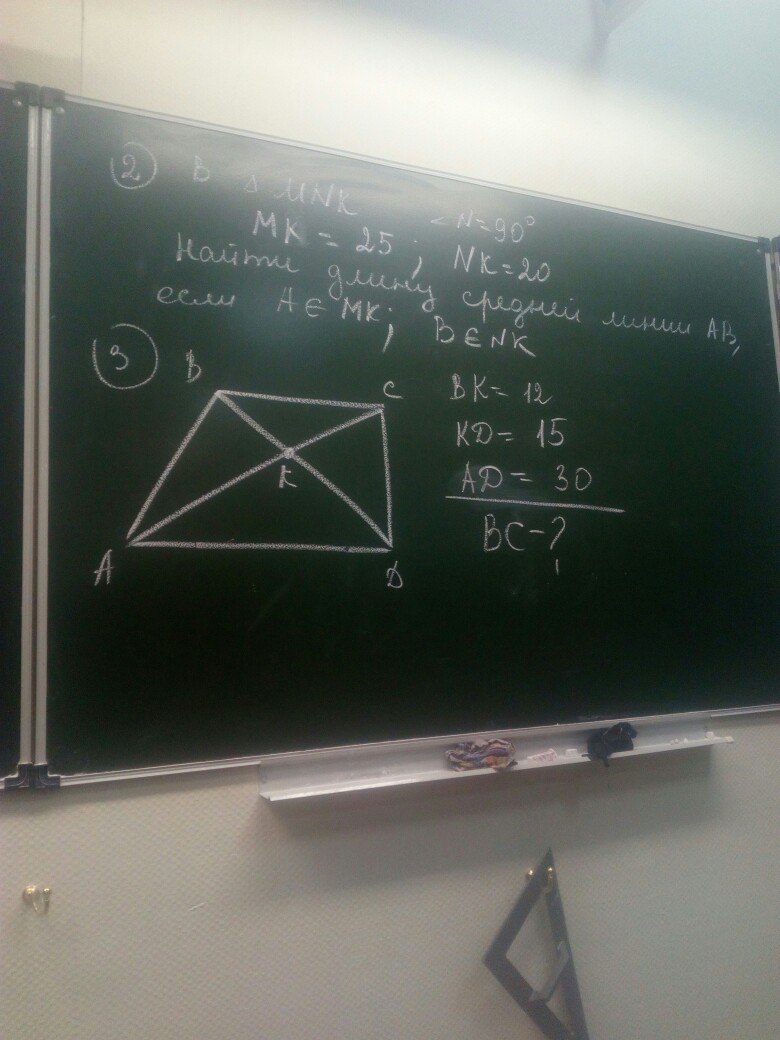 2 В Δ MNK ∠N=90°
MK = 25 ; NK=20
Найти длину средней линии AB,
если A∈MK; B∈NK
3
B
C
K
A
D
BK= 12
KD= 15
AD= 30
BC-?